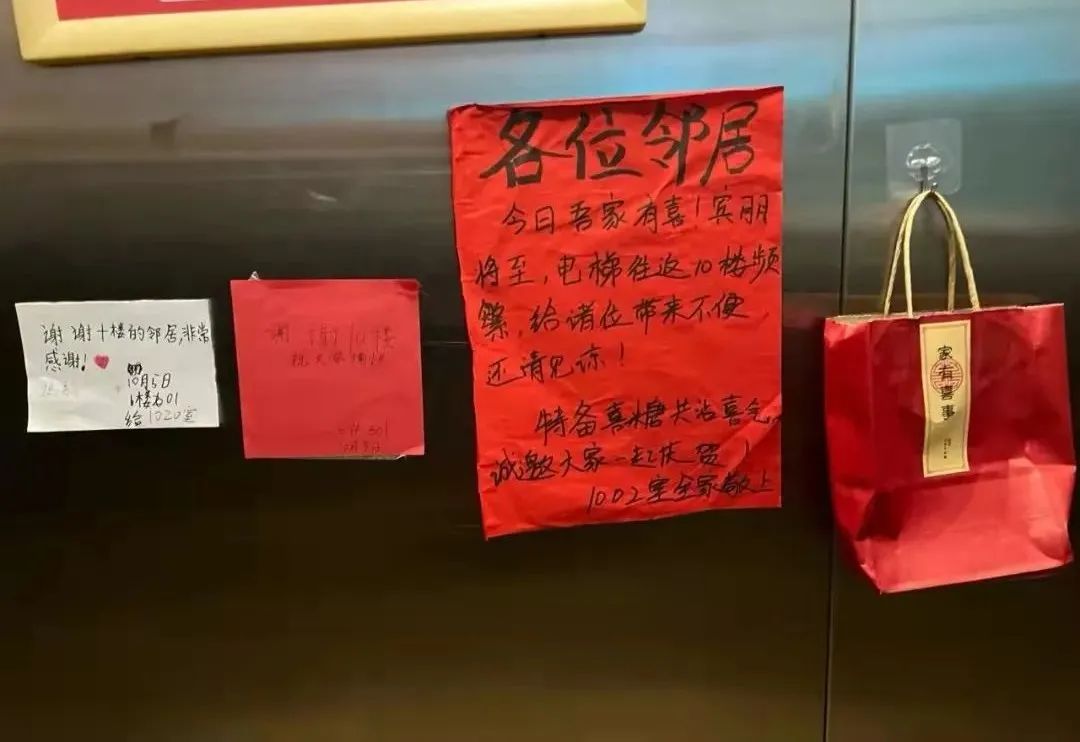 谢谢十楼的邻居,非常
感谢!
10月5日
1楼101
给1020室
谢谢10楼
祝大家
501
各位邻居
今日吾家有喜!宾朋
将至,电梯往返10楼频
繁,给诸位带来不便,
还请见谅!
特备喜糖共沾喜气。
诚邀大家一起庆贺!
1002室全家敬上
家有喜事